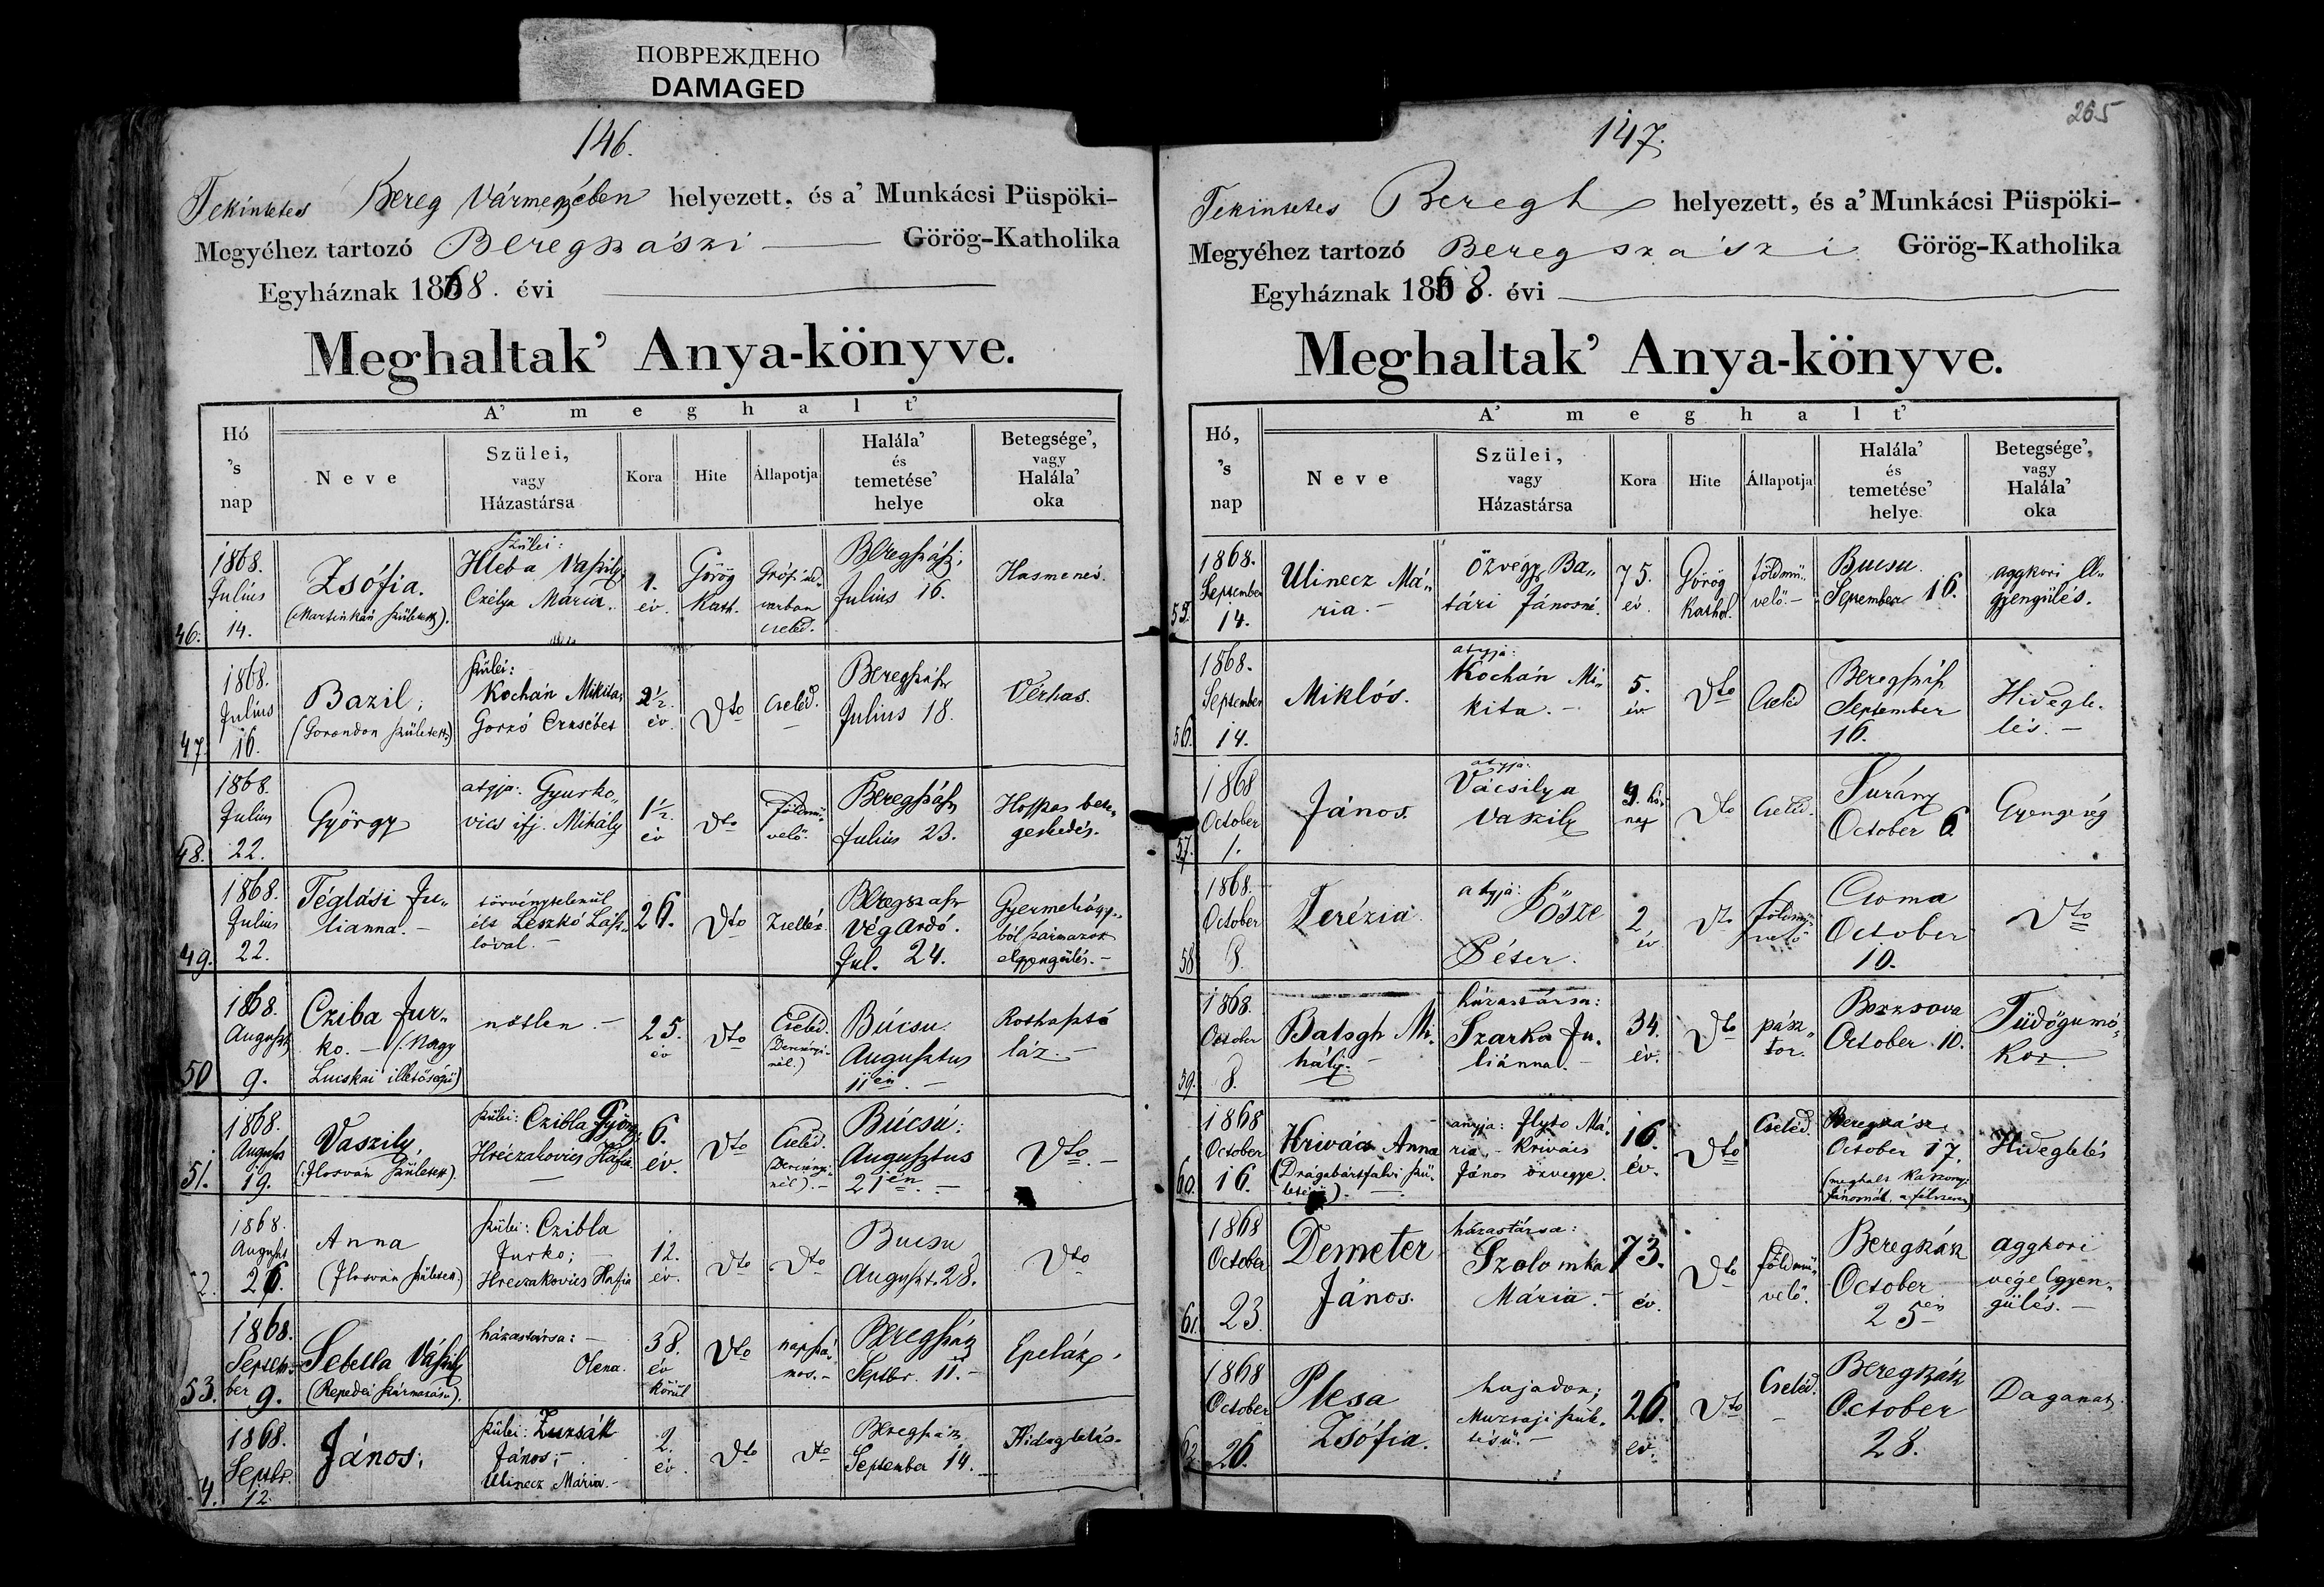 ПОВРЕЖДЕНО
DAMAGED
146.
Tekintetes Bereg Vármegyében helyezett, és a' Munkácsi Püspöki-
Megyéhez tartozó Beregszászi Görög-Katholika
Egyháznak 1868. évi
Meghaltak' Anya-könyve.
A' meghalt'
Hó 's nap
Neve
Szülei, vagy Házastársa
Kora
Hite
Állapotja
Halála' és temetése' helye
Betegsége', vagy Halála' oka
46. 1868. Julius 14.
Zsófia.
(Martinkán született).
szülei:
Hleba Vaszily
Czélya Mária.
1. év.
Görög Kath.
cseléd.
Beregszász;
Julius 16.
47. 1868. Julius 16.
Bazil;
(Gorondon született)
szülei:
Kochán Mikita;
Gorzó Erzsébet
2½. év
Dto
cseléd.
Beregszász
Julius 18.
Vérhas.
48. 1868. Julius 22.
György
atyja: Gyurko„
vics ifj. Mihály
1½. év
Dto
földmü„
velő.
Beregszász
Julius 23.
Hosszas bete„
geskedés.
49. 1868. Julius 22.
Téglási Ju„
lianna. –
törvénytelenül
élt Leszkó Lász„
lóval. –
26.
Dto
Zsellér.
Beregszasz
Végardó.
Jul. 24.
Gyermekágy„
ból származott
elgyengülés. –
50 1868. Auguszt 9.
Cziba Jur„
ko. – (Nagy
Lucskai illetőségű)
nőtlen. –
25. év
Dto
Cseléd.
(Dercsényi„
nél.)
Búcsu.
Augusztus
11én. –
Rothasztó
láz. –
51. 1868. Auguszt 19.
Vaszily
(Ilosván született).
szülei: Czibla György;
Hréczakovics Háfia
6. év.
Dto
Cseléd.
(Dercsényi„
nél). –
Búcsú:
Augusztus
21én. –
Dto. –
2. 1868. Auguszt 26.
Anna
(Ilosván született.)
szülei: Czibla
Jurko;
Hreczakovics Hafia
12. év.
Dto
Dto
Bucsu
Auguszt. 28.
Dto
53. 1868. Septem„ber 9.
Sebella Vászily
(Repedei származású).
házastársa: –
Olena.
38. év körül
Dto
napszá„
mos. –
Beregszász
Septbr. 11. –
Epeláz.
4. 1868. Septbr. 12.
János;
szülei: Zuzsák
János; –
Ulinecz Mária. –
2. év
Dto
Dto
Beregszász
September 14. –
Hideglelés.
265
147.
Tekintetes Beregh helyezett, és a' Munkácsi Püspöki-
Megyéhez tartozó Beregszászi Görög-Katholika
Egyháznak 1868. évi
Meghaltak' Anya-könyve.
A' meghalt'
Hó, 's nap
Neve
Szülei, vagy Házastársa
Kora
Hite
Állapotja
Halála' és temetése' helye
Betegsége', vagy Halála' oka
55. 1868. September 14.
Ulinecz Má„
ria. –
Özvegy Ba„
tári Jánosné.
75. év.
Görög Kathol.
földmü„
velő. –
Bucsu.
September 16.
aggkori el„
gyengülés.
56. 1868. September 14.
Miklós.
atyja:
Kochán Mi„
kita. –
5. év
Dto
Cseléd
Beregszász
September
16.
Hidegle„
lés. –
57. 1868 October 1.
János.
atyja:
Vácsilya
Vaszily
Dto
Cseléd.
Surány
October 6.
Gyengeség
58 1868. October 8.
Terézia
atyja: Pősze
Péter.
2 év
Dto
földmü„
velő
Csoma
October
10.
Dto
59. 1868. October 8.
Balogh Mi„
hály. –
házastársa:
Szarka Ju„
liánna. –
34. év.
Dto
pász„
tor.
Borzsova
October 10.
Tüdőgumó„
kor
60. 1868 October 16.
Krivács Anna
(Drágabártfalvi szü„
letésű). –
anyja: Ilyto Má„
ria, – Krivács
János özvegye.
16. év.
Dto
Cseléd.
Beregszász
October 17.
(meghalt Kaszonyi
Jánosnál,
Hideglelés
61. 1868 October 23
Demeter
János.
házastársa:
Szolomka
Mária. –
73. év.
Dto
földmü„
velő.
Beregszász
October
25én
aggkori
végelgyen„
gülés. –
62. 1868 October 26.
Plesa
Zsófia.
hajadon;
Muzsaji szüle„
tésü. –
26. év.
Dto
Cseléd.
Beregszász
October
28.
Daganat